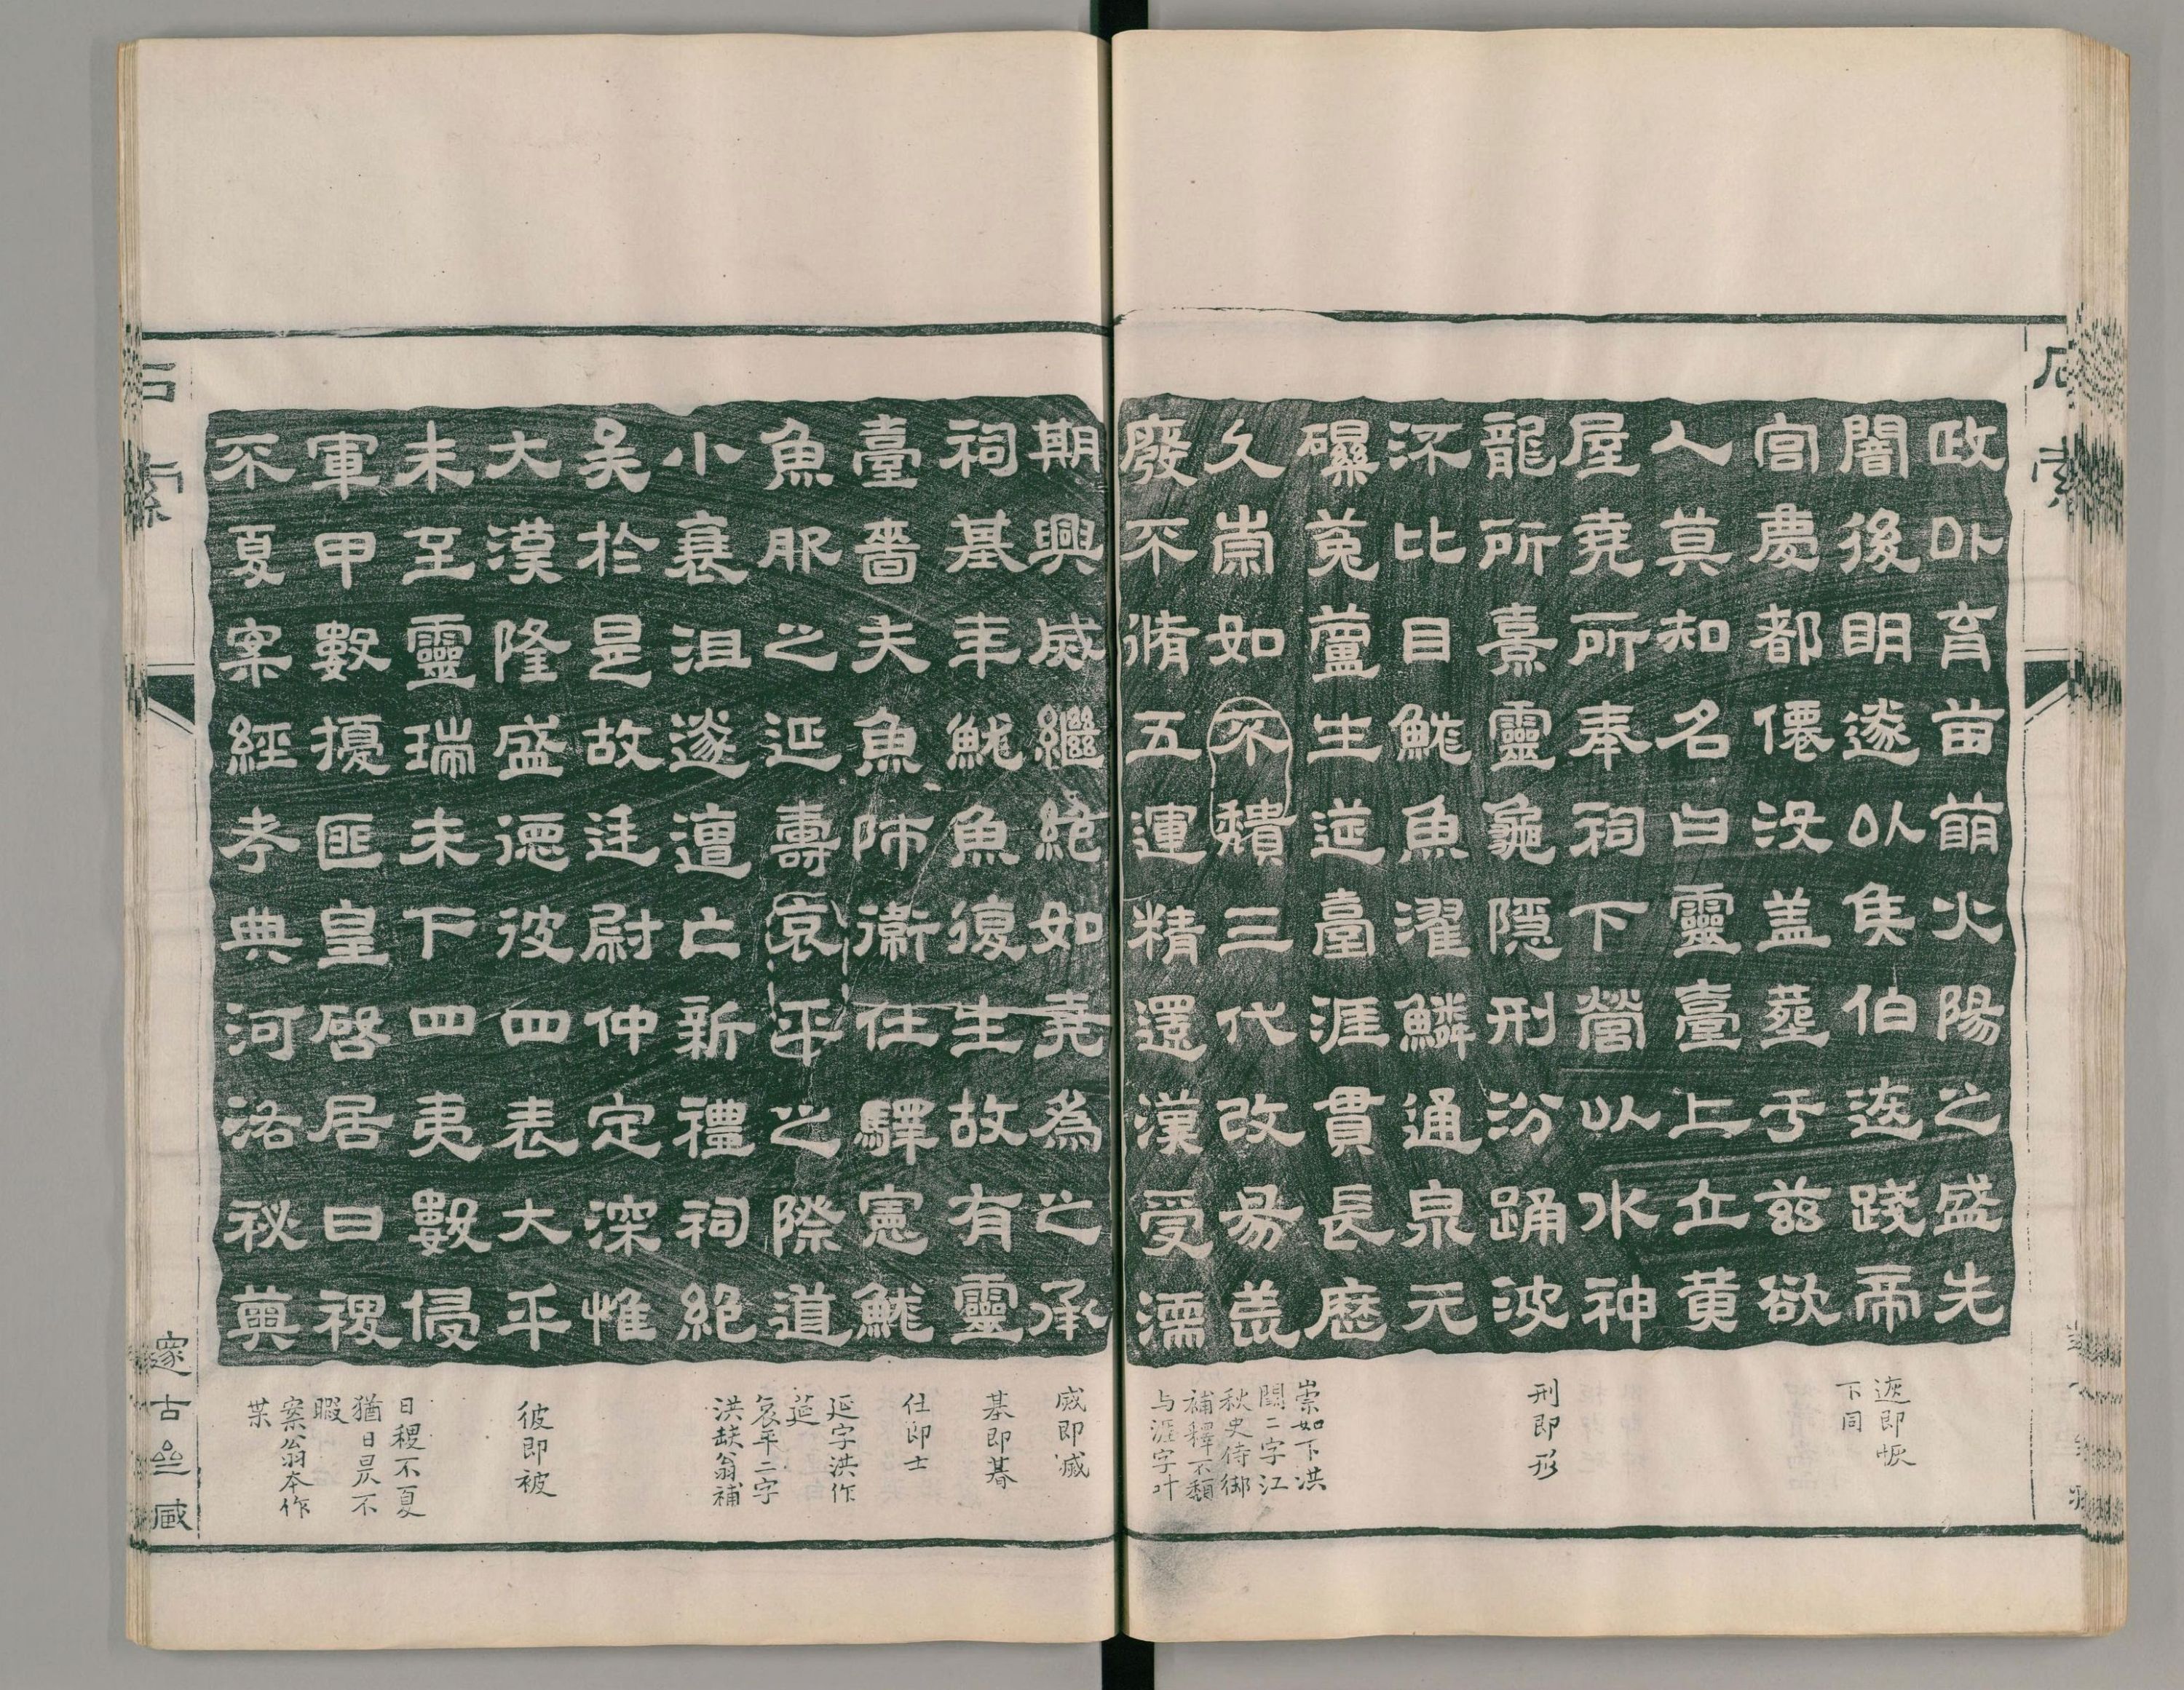 政卧育苗萠火陽之盛先
闇後明遂以矦伯遊踐帝
宮慶都僊没盖葬于兹欲
人莫知名曰靈臺上立黃
屋堯所奉祠下營以水神
龍所熹靈龜隱刑沕踊波
㳅比目鮵魚濯鱗通泉元
礝菟蘆生莚臺涯貫長歷
久崇如不穨三代改易荒
廢不脩五運精還漢受濡
期興烕繼絶如堯為之承
祠基年鮵魚復生故有靈
臺嗇夫魚師衛仕驛憲鮵
魚服之延壽哀平之際道
小衰沮遂遭亡新禮祠絶
矣於是故廷尉仲定深惟
大漢隆盛德彼四表大平
未至靈瑞未下四夷數侵
軍甲數擾匪皇啓居日稷
不夏案經考典河洛秘奧
遊即恢
下同
刑即形
崇如下洪
闕二字江
秋史侍御
補釋不頹
与涯字叶
烕即滅
基即朞
仕即士
延字洪作
莚
哀平二字
洪缺翁補
彼即被
日稷不夏
猶日昃不
暇
案翁本作
某
石索
邃古亝臧
石索